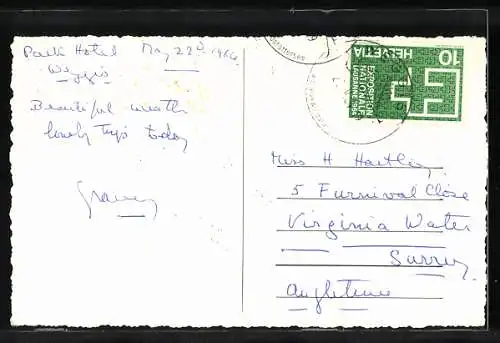 Park Hotel May 22d 1964
Weggis
Beautiful weather
lovely trips today
Miss H Hartley
5 Furnival Close
Virginia Water
Surrey
Angleterre
HELVETIA 10
EXPOSITION
NATIONALE
LAUSANNE 1964